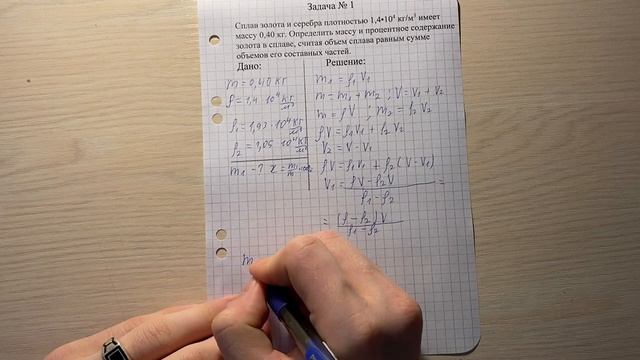 Задача № 1
Сплав золота и серебра плотностью 1,4•10⁴ кг/м³ имеет
массу 0,40 кг. Определить массу и процентное содержание
золота в сплаве, считая объем сплава равным сумме
объемов его составных частей.
Дано:
m = 0,40 кг
ρ = 1,4 · 10⁴ кг/м³
ρ₁ = 1,93 · 10⁴ кг/м³
ρ₂ = 1,05 · 10⁴ кг/м³
m₁ - ? x = m₁/m
Решение:
m₁ = ρ₁ V₁
m = m₁ + m₂ ; V = V₁ + V₂
m = ρV ; m₂ = ρ₂ V₂
ρV = ρ₁V₁ + ρ₂ V₂
V₂ = V - V₁
ρV = ρ₁V₁ + ρ₂ (V - V₁)
V₁ = (ρV - ρ₂V)/(ρ₁ - ρ₂) =
= (ρ - ρ₂)V/(ρ₁ - ρ₂)
m